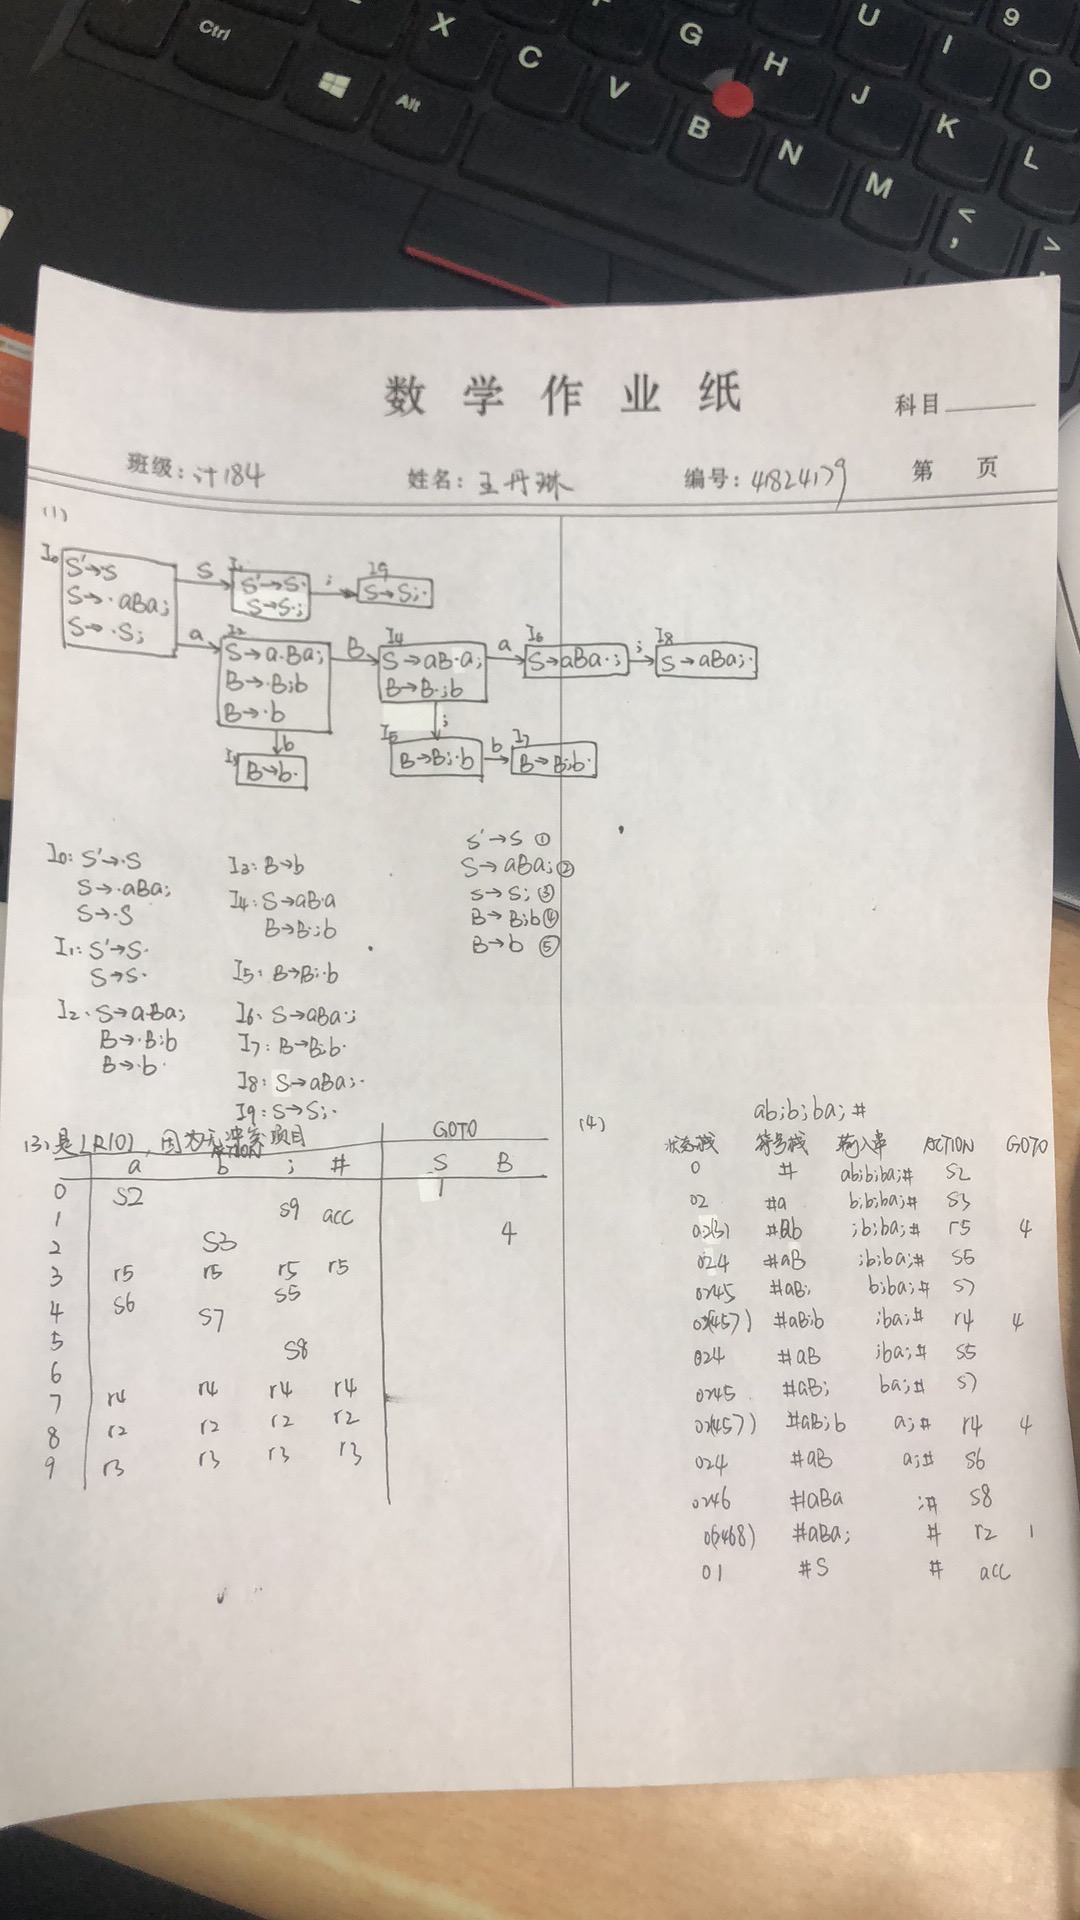 9
U
I
O
G
H
J
K
L
X
C
V
B
N
M
<
,
>
.
Ctrl
Alt
数 学 作 业 纸
科目
班级: 计184
姓名: 王丹琳
编号: 41824179
第 页
(1)
I0
S'→S
S→·aBa;
S→·S;
S
I1
S'→S·
S→S·;
;
I9
S→S;·
a
I2
S→a·Ba;
B→·B;b
B→·b
B
I4
S→aB·a;
B→B·;b
a
I6
S→aBa·;
;
I8
S→aBa;·
b
I3
B→b·
;
I5
B→B;·b
b
I7
B→B;b·
I0: S'→·S
S→·aBa;
S→·S
I1: S'→S·
S→S·
I2: S→a·Ba;
B→·B;b
B→·b
I3: B→b
I4: S→aB·a
B→B·;b
I5: B→B;·b
I6: S→aBa·;
I7: B→B;b·
I8: S→aBa;·
I9: S→S;·
S'→S ①
S→aBa; ②
S→S; ③
B→B;b ④
B→b ⑤
(3) 是LR(0), 因为无冲突项目
ACTION GOTO
a b ; # S B
0 S2 1
1 S9 acc
2 S3 4
3 r5 r5 r5 r5
4 S6 S5
5 S7
6 S8
7 r4 r4 r4 r4
8 r2 r2 r2 r2
9 r3 r3 r3 r3
(4)
ab;b;ba;#
状态栈 符号栈 输入串 ACTION GOTO
0 # ab;b;ba;# S2
02 #a b;b;ba;# S3
02(3) #ab ;b;ba;# r5 4
024 #aB ;b;ba;# S5
0245 #aB; b;ba;# S7
02(457) #aB;b ;ba;# r4 4
024 #aB ;ba;# S5
0245 #aB; ba;# S7
02(457) #aB;b a;# r4 4
024 #aB a;# S6
0246 #aBa ;# S8
0(2468) #aBa; # r2 1
01 #S # acc